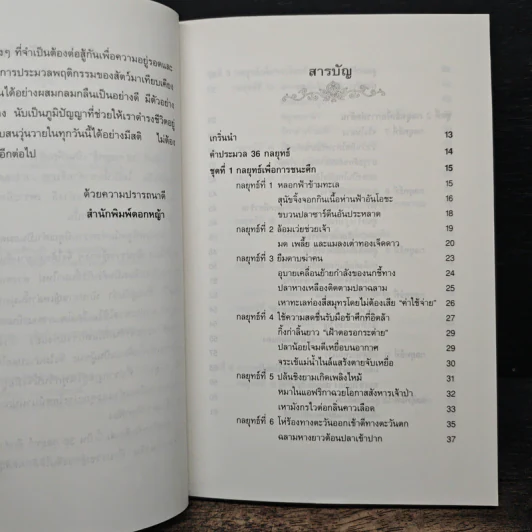 งๆ ที่จำเป็นต้องต่อสู้กันเพื่อความอยู่รอดและ
การประมวลพฤติกรรมของสัตว์มาเทียบเคียง
นได้อย่างผสมกลมกลืนเป็นอย่างดี มีตัวอย่าง
ง นับเป็นภูมิปัญญาที่ช่วยให้เราดำรงชีวิตอยู่
บสนวุ่นวายในทุกวันนี้ได้อย่างมีสติ ไม่ต้อง
อีกต่อไป
ด้วยความปรารถนาดี
สำนักพิมพ์ดอกหญ้า
สารบัญ
เกริ่นนำ 13
คำประมวล 36 กลยุทธ์ 14
ชุดที่ 1 กลยุทธ์เพื่อการชนะศึก 15
กลยุทธ์ที่ 1 หลอกฟ้าข้ามทะเล 15
สุนัขจิ้งจอกกินเนื้อห่านฟ้าอันโอชะ 16
ขบวนปลาซาร์ดีนอันประหลาด 18
กลยุทธ์ที่ 2 ล้อมเว่ยช่วยเจ้า 19
มด เพลี้ย และแมลงเต่าทองเจ็ดดาว 20
กลยุทธ์ที่ 3 ยืมดาบฆ่าคน 23
อุบายเคลื่อนย้ายกำลังของนกขี้ทาง 23
ปลาหางเหลืองติดตามปลาฉลาม 25
เหาทะเลท่องสี่สมุทรโดยไม่ต้องเสีย "ค่าใช้จ่าย" 26
กลยุทธ์ที่ 4 ใช้ความสดชื่นรับมือข้าศึกที่อิดล้า 27
กิ้งก่าลิ้นยาว "เฝ้าตอรอกระต่าย" 29
ปลาน้อยโจมตีเหยื่อบนอากาศ 29
จระเข้แม่น้ำไนล์แสร้งตายจับเหยื่อ 30
กลยุทธ์ที่ 5 ปล้นชิงยามเกิดเพลิงไหม้ 31
หมาในแอฟริกาฉวยโอกาสสังหารเจ้าป่า 31
เหามังกรไวต่อกลิ่นคาวเลือด 33
กลยุทธ์ที่ 6 โห่ร้องทางตะวันออกเข้าตีทางตะวันตก 35
ฉลามหางยาวต้อนปลาเข้าปาก 37